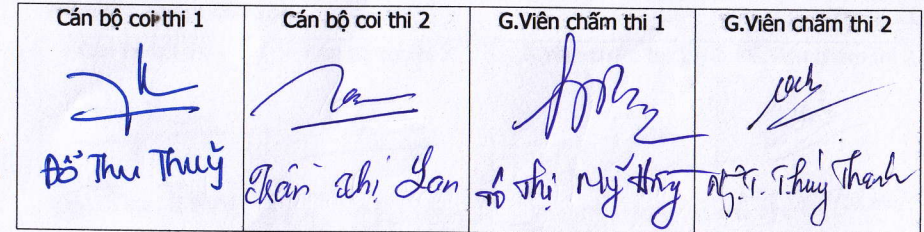 Cán bộ coi thi 1
Cán bộ coi thi 2
G.Viên chấm thi 1
G.Viên chấm thi 2
Đỗ Thu Thuỷ
Trần Thị Lan
Thị Mỹ
T. Thúy Thanh